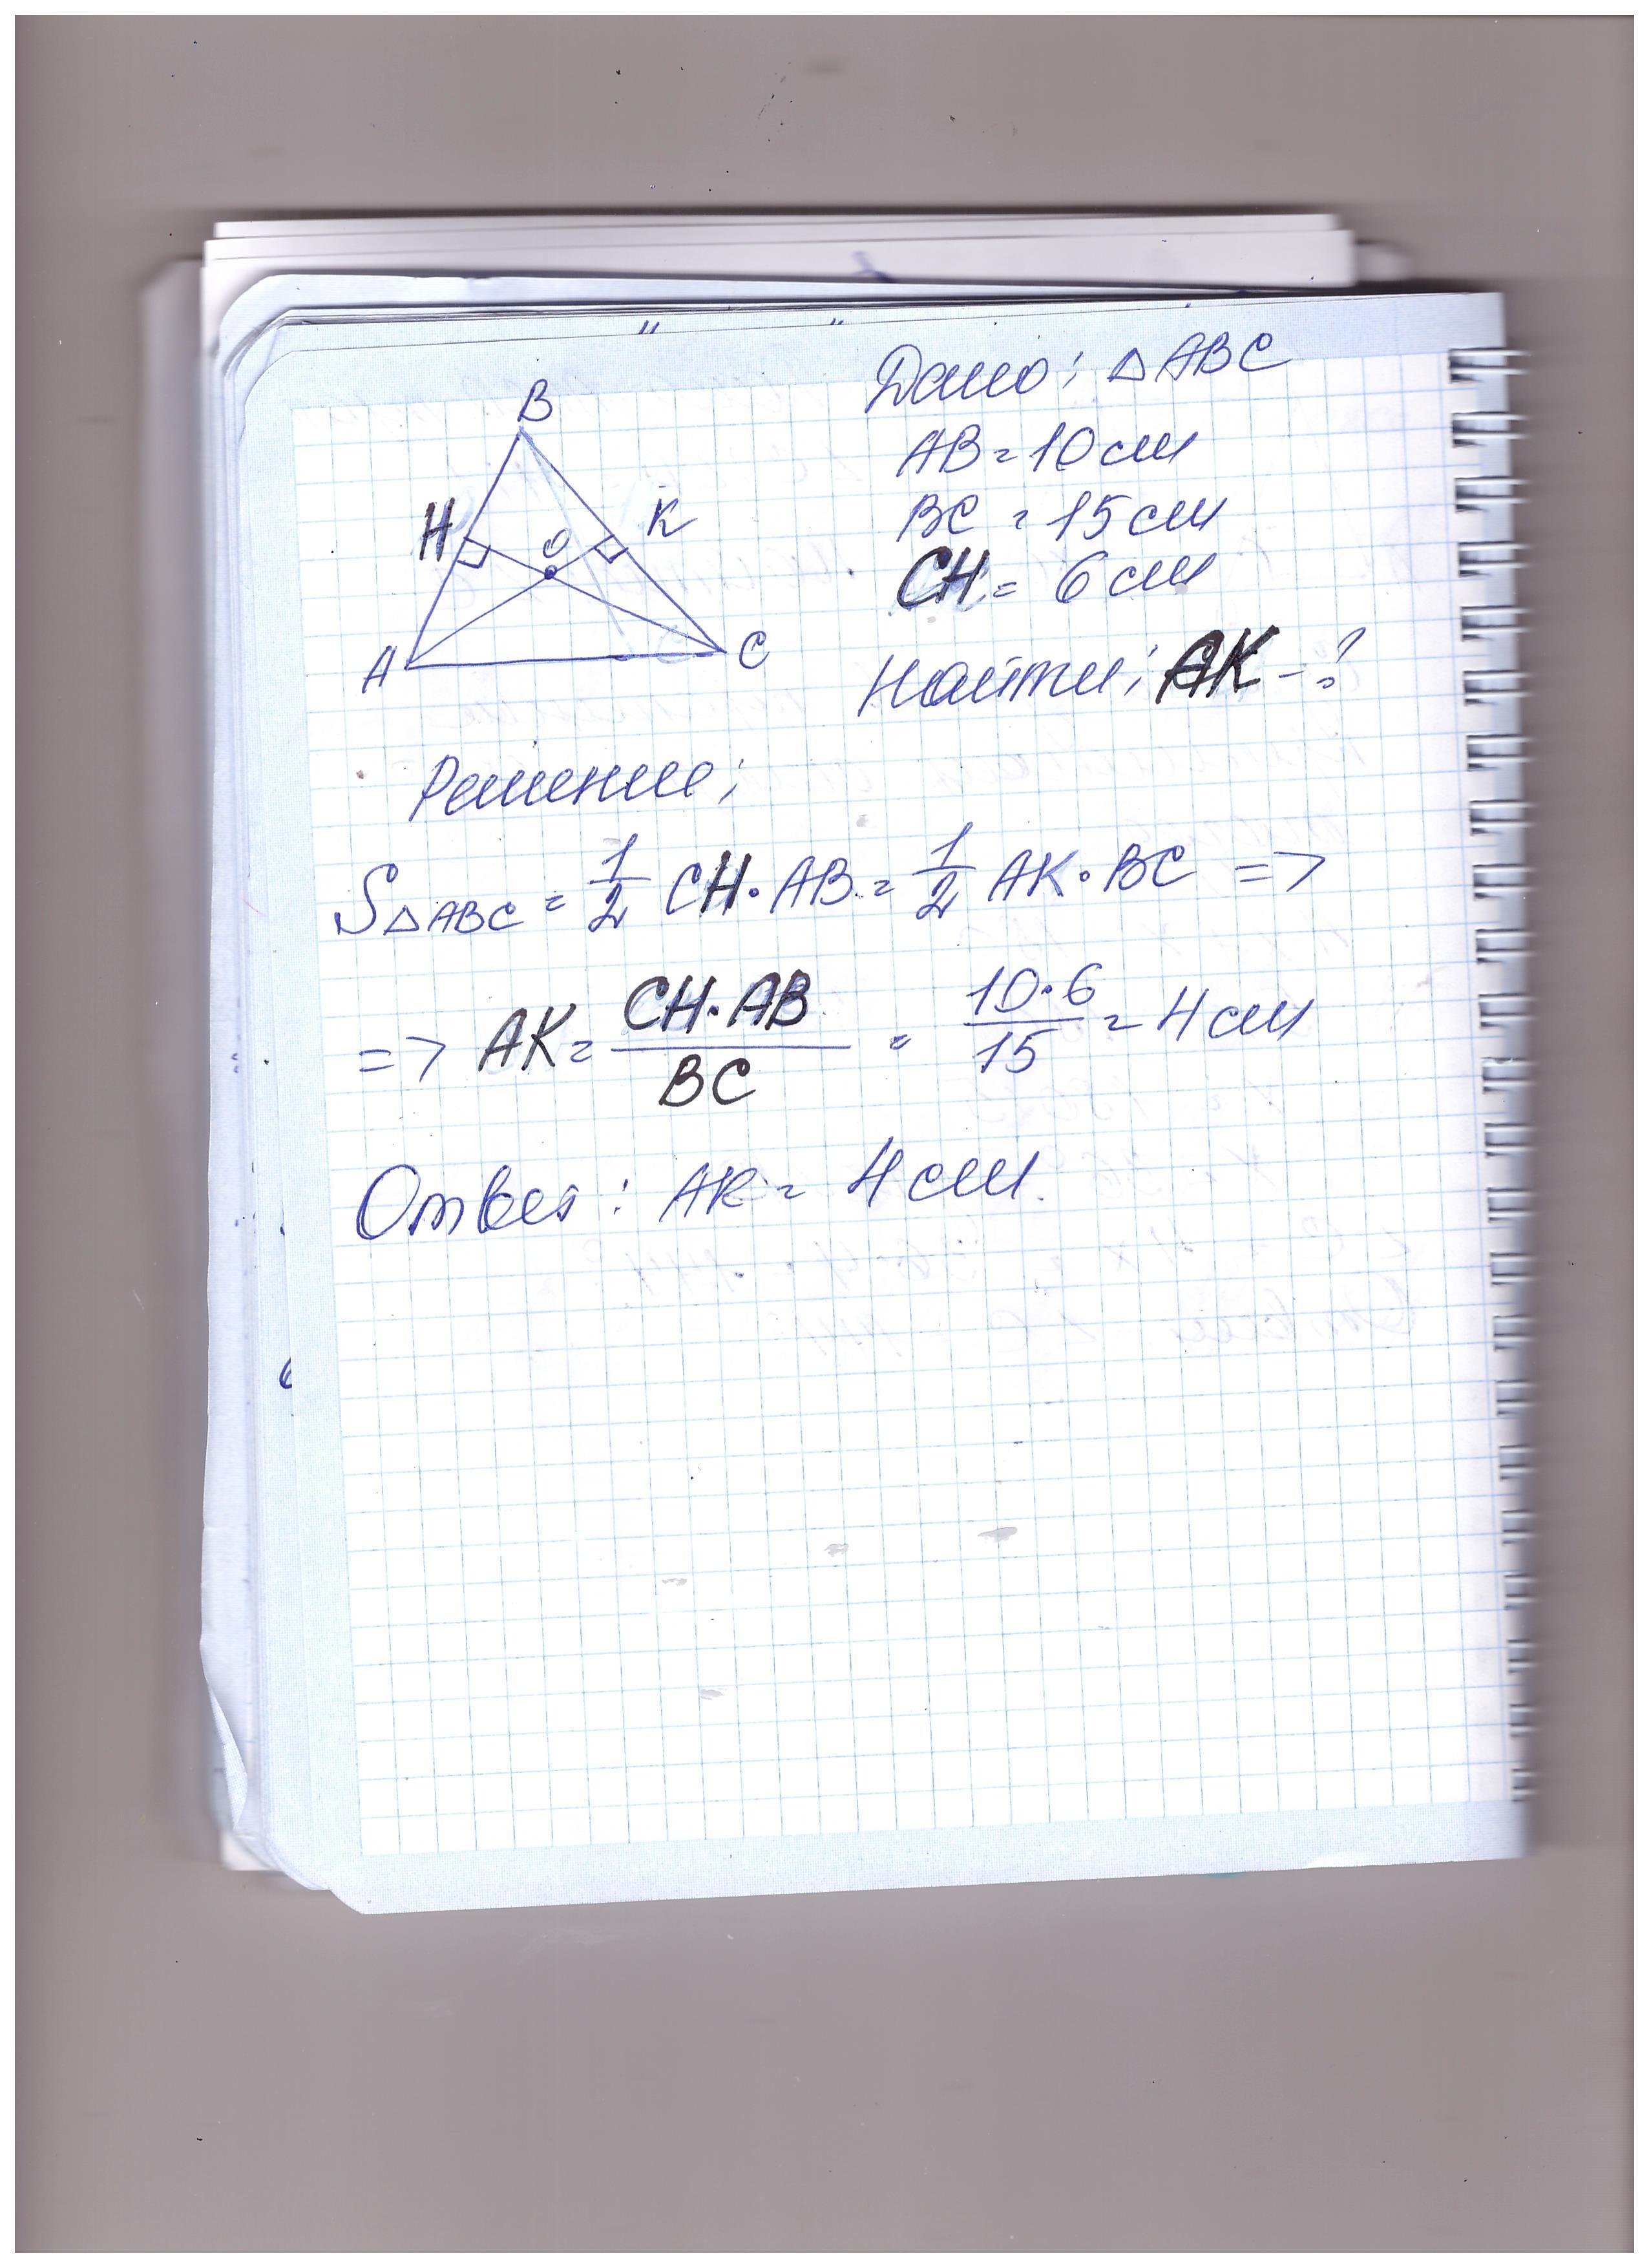 B
H
K
O
A
C
Дано: △ABC
AB = 10 см
BC = 15 см
CH = 6 см
Найти: AK - ?
Решение:
S△ABC = 1/2 CH · AB = 1/2 AK · BC =>
=> AK = CH · AB / BC = 10 · 6 / 15 = 4 см
Ответ: AK = 4 см.